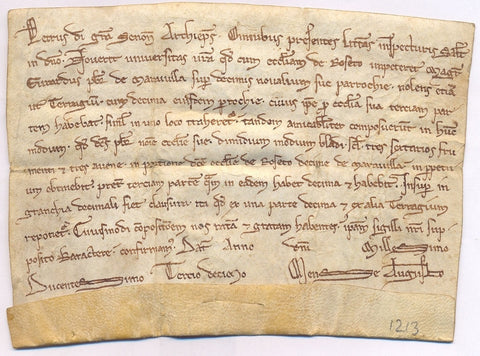 Petrus di gra Senon Archieps Omnibus presentes litteras inspecturis salt
in dno. Noverit universitas vra qd cum ecclam de Roseto impeteret magr
Girardus pbr de maravilla sup decimis novalium sue parrochie. nolens etiam
ut Terragiu cum decima eiusdem prochie. cuius ipse pro ecclia sua terciam par
tem habebat. simul in uno loco traheretr. tandem amicabiliter composuerunt in hunc
modum. qd dcs pbr noie ecclie sue dimidium modium bladi. scil. tres sextarios fru
menti et tres avene. in portione dce ecclie de Roseto decime de maravilla. in perpetuum
obtinebit. preter terciam partem quam in eadem habet decima et habebit. Insup in
granchia decimali fiet clausura ita qd ex una parte decima et ex alia Terragium
reponetr. Cuiusmodi compositionem nos ratam et gratam habentes. ipsam sigilli nri sup
posito karactere. confirmamus. Dat Anno dni Millesimo
Ducentesimo Tercio decimo Mense Augusto
1213